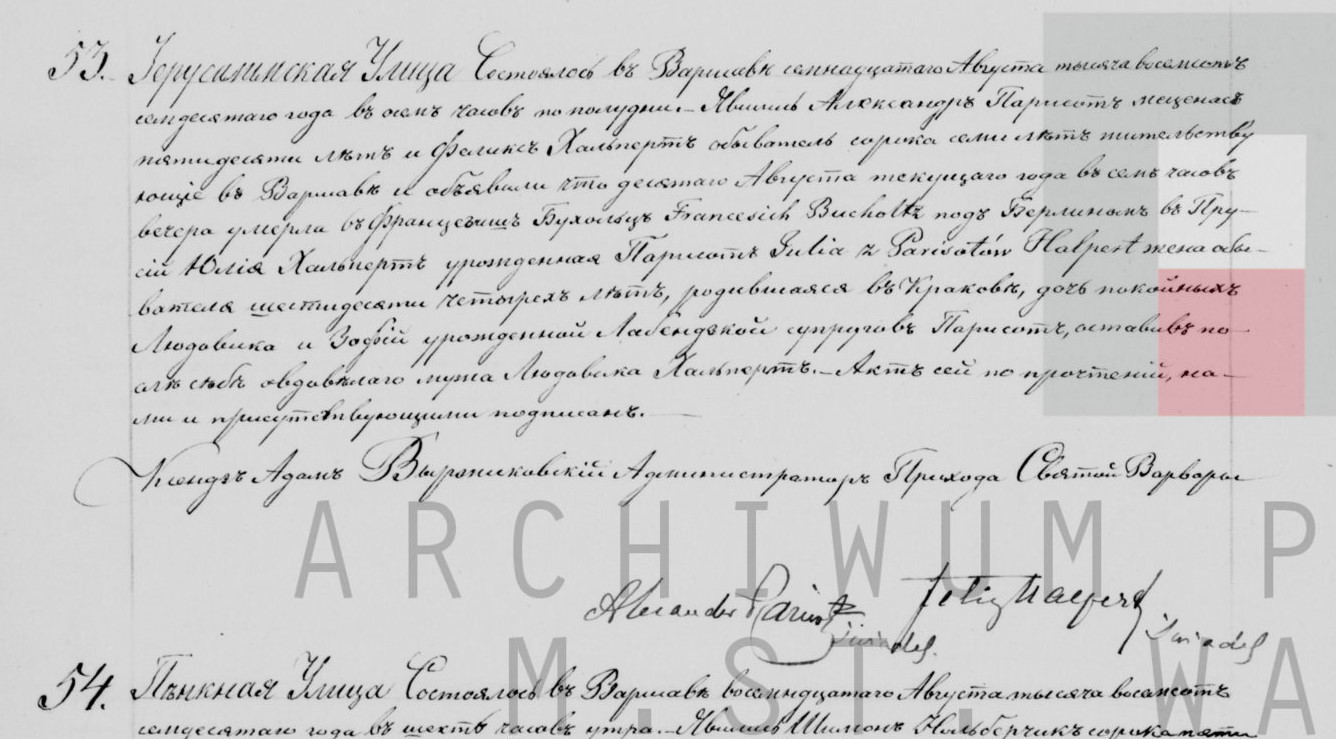 53. Іерусалимская Улица Состоялось въ Варшавѣ семнадцатаго Августа тысяча восемсотъ
семдесятаго года въ семъ часовъ по полудни. Явились Александръ Парисотъ меценасъ
пятидесяти лѣтъ и Феликсъ Хальпертъ обыватель сорока семи лѣтъ жительству
ющіе въ Варшавѣ и объявили что десятаго Августа текущаго года въ семъ часовъ
вечера умерла въ Бухольцъ Bucholtz подъ Берлиномъ въ Пру-
сіи Юлія Хальпертъ урожденная Парисотъ Julia z Parisotów Halpert жена обы-
вателя шестидесяти четырехъ лѣтъ, родившаяся въ Краковѣ, дочь покойныхъ
Людовика и Зофіи урожденной Лабендзкой супруговъ Парисотъ, оставивъ по-
слѣ себѣ овдовѣлаго мужа Людовика Хальпертъ. - Актъ сей по прочтеніи, на-
ми и присутствующими подписанъ.
Ксендзъ Адамъ Администраторъ Прихода Святой Варвары
ARCHIWUM P
Alexander Parisot świadek. Felix Halpert świadek
M. ST. WA
54. Пѣнкная Улица Состоялось въ Варшавѣ восемнадцатаго Августа тысяча восемсотъ
семдесятаго года въ шесть часовъ утра. - Явились Шимонъ сорока пяти